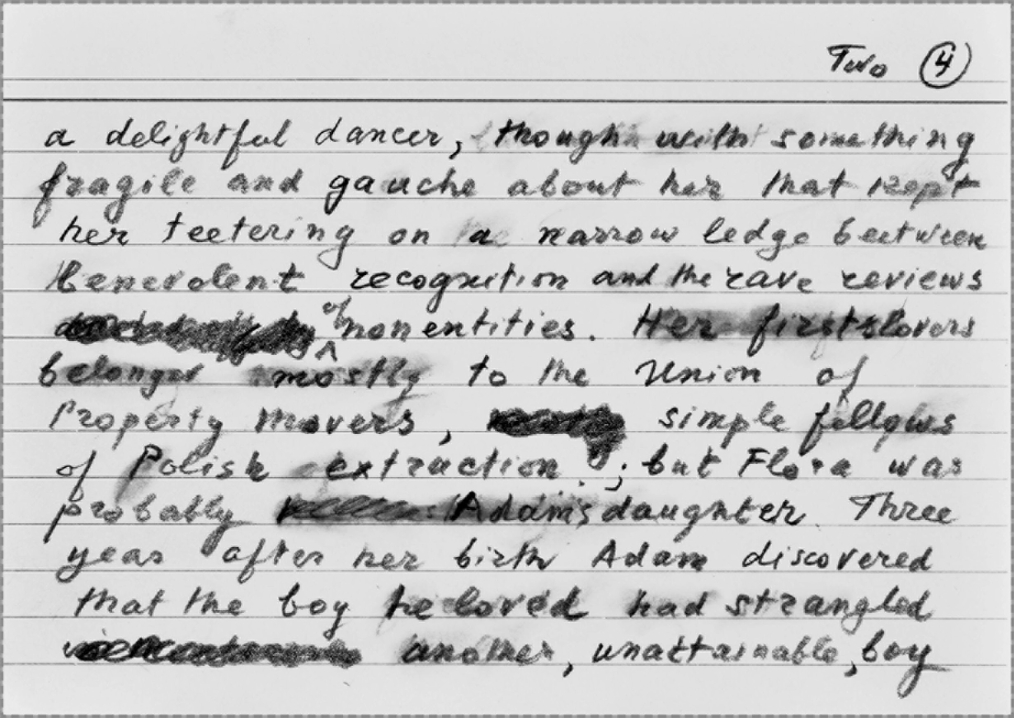 Two 4
a delightful dancer, though with something
fragile and gauche about her that kept
her teetering on a narrow ledge between
benevolent recognition and the rave reviews
of nonentities. Her first lovers
belonged mostly to the Union of
Property Movers, simple fellows
of Polish extraction; but Flora was
probably Adam's daughter Three
year after her birth Adam discovered
that the boy he loved had strangled
another, unattainable, boy